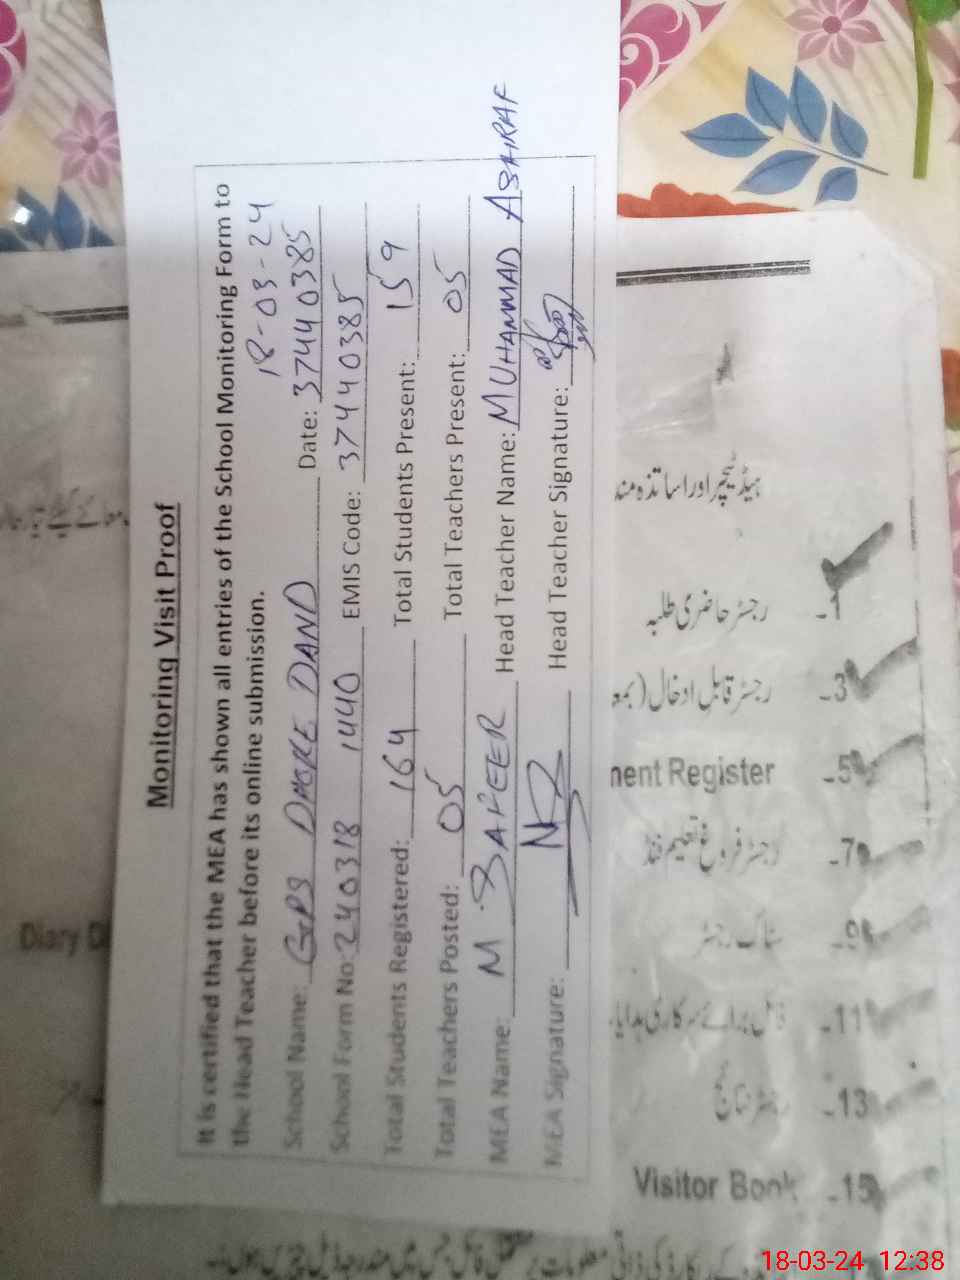 Monitoring Visit Proof
It is certified that the MEA has shown all entries of the School Monitoring Form to
the Head Teacher before its online submission.
18-03-24
School Name: GPS DHOKE DAND Date: 37440385
School Form No: 240318 1440 EMIS Code: 37440385
Total Students Registered: 164 Total Students Present: 159
Total Teachers Posted: 05 Total Teachers Present: 05
MEA Name: M SAFEER Head Teacher Name: MUHAMMAD ASHRAF
MEA Signature: Head Teacher Signature:
ہیڈ ٹیچر اور اساتذہ مند
1- رجسٹر حاضری طلبہ
3- رجسٹر قابل ادخال (بمعہ
5- ment Register
7- رجسٹر فروغ تعلیم فنڈ
9- سٹاک رجسٹر
11- فائل برائے سرکاری ہدایا
13- رجسٹر نتائج
15- Visitor Book
Diary Di
18-03-24 12:38